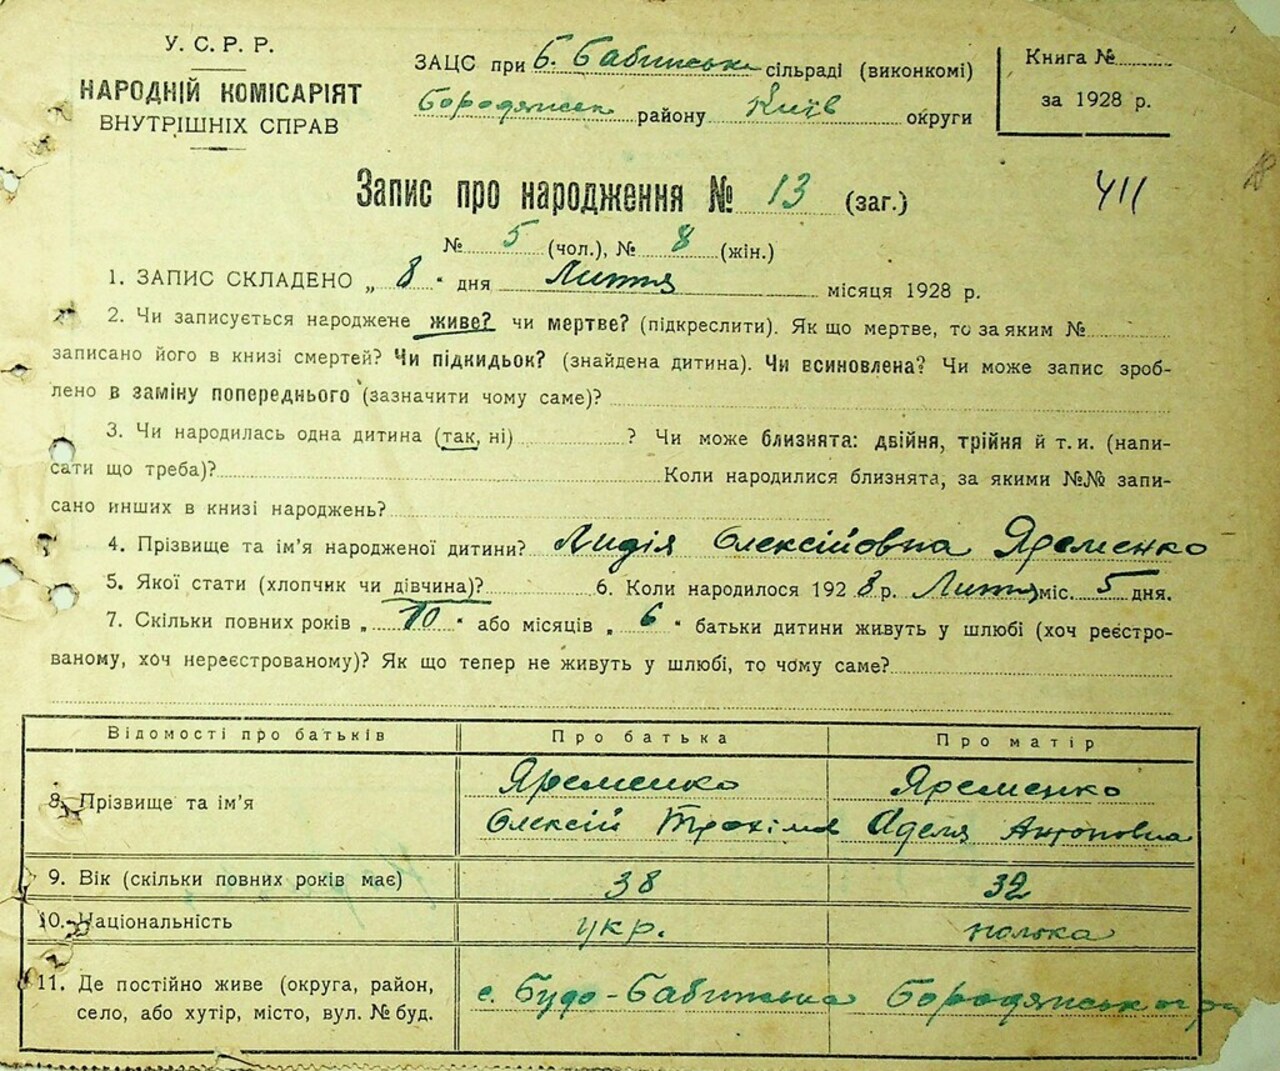 У. С. Р. Р.
НАРОДНІЙ КОМІСАРІЯТ
ВНУТРІШНІХ СПРАВ
ЗАЦС при Б. Бабинськ сільраді (виконкомі)
Бородянськ району Київ округи
Книга №
за 1928 р.
Запис про народження № 13 (заг.)
411
№ 5 (чол.), № 8 (жін.)
1. ЗАПИС СКЛАДЕНО „ 8 " дня Лиття місяця 1928 р.
2. Чи записується народжене живе? чи мертве? (підкреслити). Як що мертве, то за яким №
записано його в книзі смертей? Чи підкидьок? (знайдена дитина). Чи всиновлена? Чи може запис зроб-
лено в заміну попереднього (зазначити чому саме)?
3. Чи народилась одна дитина (так, ні) ? Чи може близнята: двійня, трійня й т. и. (напи-
сати що треба)? Коли народилися близнята, за якими №№ запи-
сано инших в книзі народжень?
4. Прізвище та ім'я народженої дитини? Лидія Олексійовна Яременко
5. Якої стати (хлопчик чи дівчина)? 6. Коли народилося 192 8 р. Лиття міс. 5 дня.
7. Скільки повних років „ 10 " або місяців „ 6 " батьки дитини живуть у шлюбі (хоч реєстро-
ваному, хоч нереєстрованому)? Як що тепер не живуть у шлюбі, то чому саме?
Відомості про батьків Про батька Про матір
8. Прізвище та ім'я Яременко Яременко
Олексій Трохімов Аделя Антоновна
9. Вік (скільки повних років має) 38 32
10. Національність укр. полька
11. Де постійно живе (округа, район,
село, або хутір, місто, вул. № буд.
с. Будо-Бабинська Бородянського р